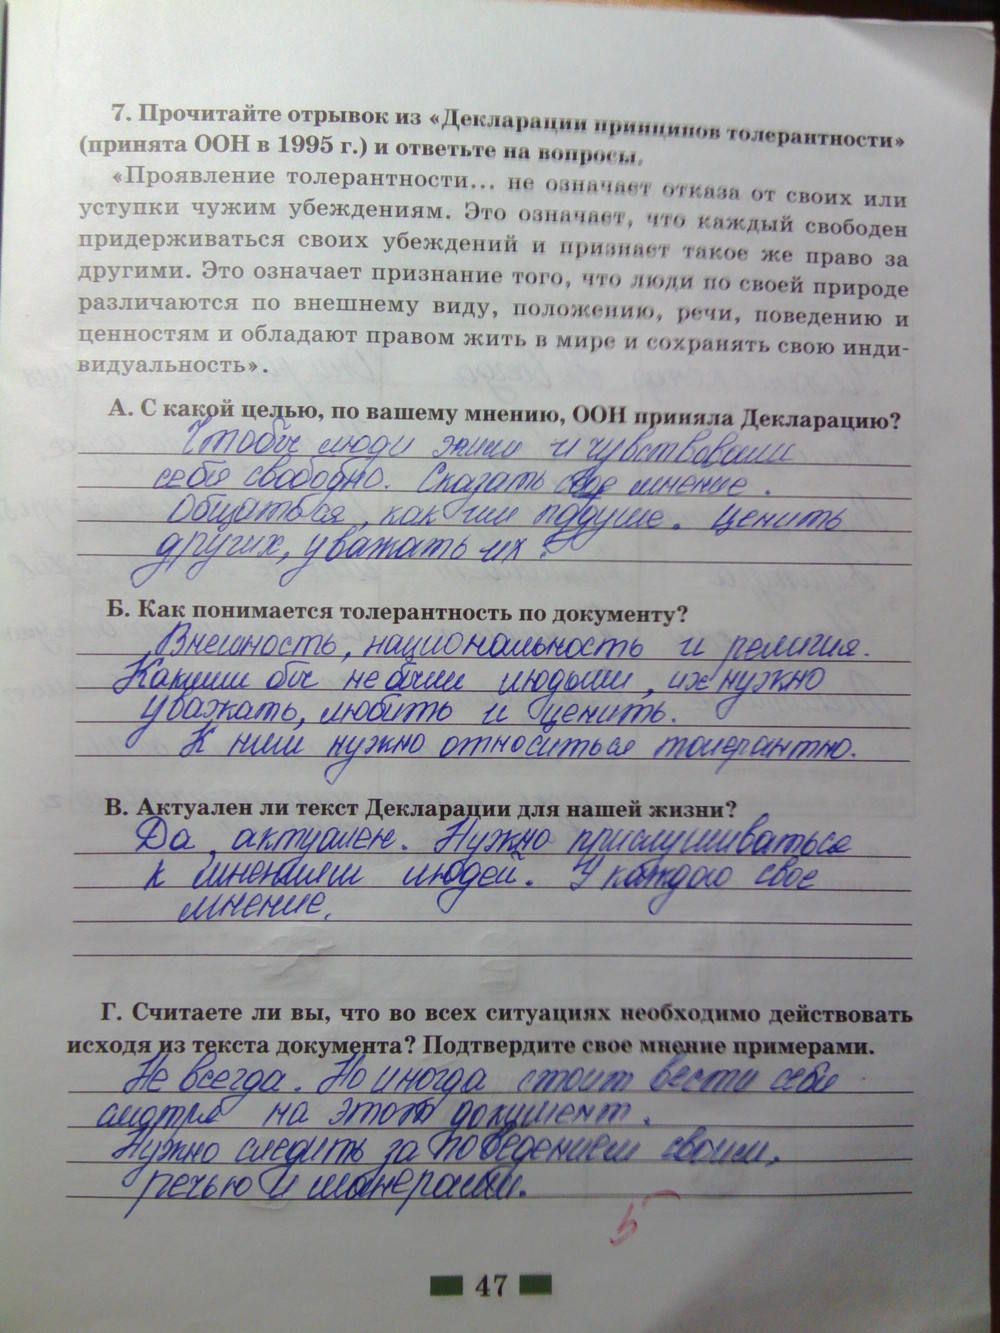 7. Прочитайте отрывок из «Декларации принципов толерантности»
(принята ООН в 1995 г.) и ответьте на вопросы.
«Проявление толерантности... не означает отказа от своих или
уступки чужим убеждениям. Это означает, что каждый свободен
придерживаться своих убеждений и признает такое же право за
другими. Это означает признание того, что люди по своей природе
различаются по внешнему виду, положению, речи, поведению и
ценностям и обладают правом жить в мире и сохранять свою инди-
видуальность».
А. С какой целью, по вашему мнению, ООН приняла Декларацию?
Чтобы люди жили и чувствовали
себя свободно. Сказать свое мнение.
Общаться, как им по душе. Ценить
других, уважать их.
Б. Как понимается толерантность по документу?
Внешность, национальность и религия.
Какими бы не были людьми, их нужно
уважать, любить и ценить.
К ним нужно относиться толерантно.
В. Актуален ли текст Декларации для нашей жизни?
Да, актуален. Нужно прислушиваться
к мнениям людей. У каждого свое
мнение.
Г. Считаете ли вы, что во всех ситуациях необходимо действовать
исходя из текста документа? Подтвердите свое мнение примерами.
Не всегда. Но иногда стоит вести себя
смотря на этот документ.
Нужно следить за поведением своим,
речью и манерами.
5
47